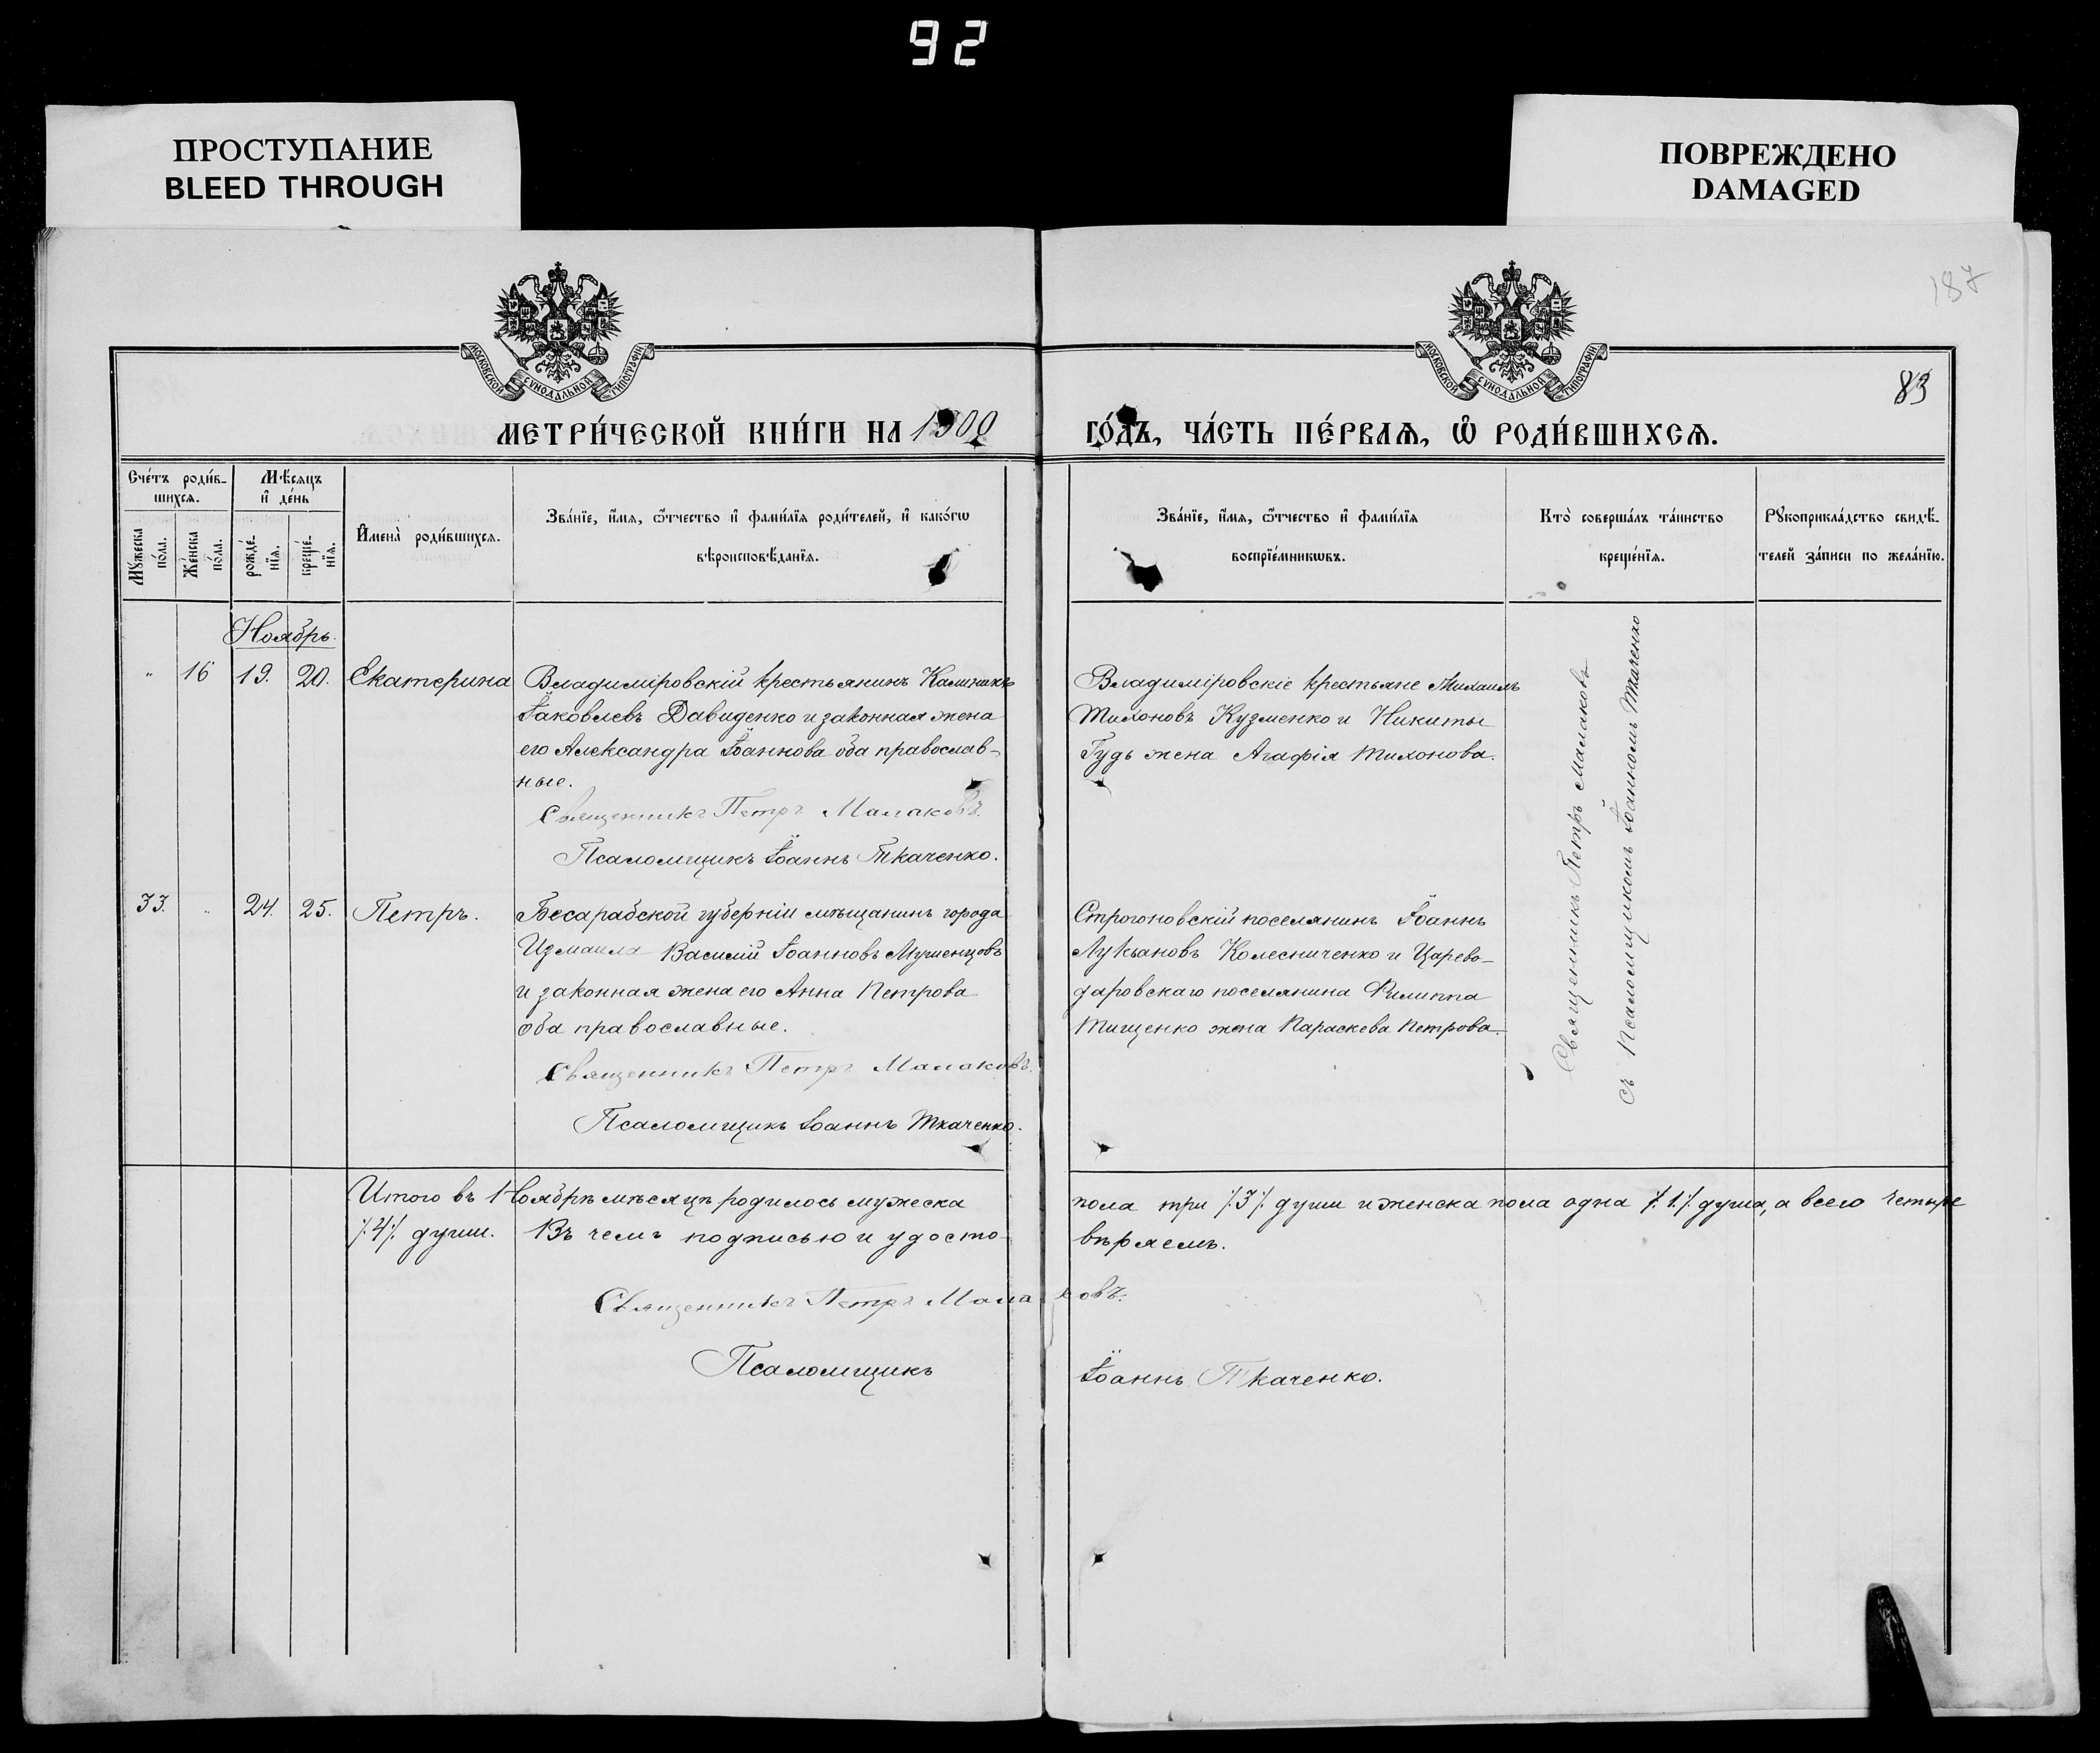 92
ПРОСТУПАНИЕ
BLEED THROUGH
ПОВРЕЖДЕНО
DAMAGED
187
МОСКОВСКОЙ СУНОДАЛЬНОЙ ТИПОГРАФІИ
МОСКОВСКОЙ СУНОДАЛЬНОЙ ТИПОГРАФІИ
83
МЕТРИ́ЧЕСКОЙ КНИ́ГИ НА 1900
ГО́ДЪ, ЧА́СТЬ ПЕ́РВАѦ, Ѡ҆ РОДИ́ВШИХСѦ.
Сче́тъ роди́в-
шихсѧ.
Мѣ́сѧцъ
и҆ де́нь
Мꙋ́жеска
по́ла.
Же́нска
по́ла.
рожде́-
нїѧ.
креще́-
нїѧ.
И҆мена̀ роди́вшихсѧ.
Зва́нїе, и҆́мѧ, ѻ҆́тчество и҆ фами́лїѧ роди́телей, и҆ како́гѡ
вѣроисповѣ́данїѧ.
Зва́нїе, и҆́мѧ, ѻ҆́тчество и҆ фами́лїѧ
воспрїе́мникѡвъ.
Кто̀ соверша́лъ та́инство
креще́нїѧ.
Рꙋкоприкла́дство свидѣ́-
телей за́писи по жела́нїю.
Ноябрь.
" 16 19. 20. Екатерина
Владиміровскій крестьянинъ Калиникъ
Іаковлевъ Давиденко и законная жена
его Александра Іоаннова оба православ-
ные.
Священникъ Петръ Малаковъ.
Псаломщикъ Іоаннъ Ткаченко.
Владиміровскіе крестьяне Михаилъ
Тихоновъ Кузменко и Никиты
Гудь жена Агафія Тихонова.
Священникъ Петръ Малаковъ
съ Псаломщикомъ Іоанномъ Ткаченко
33. " 24. 25. Петръ.
Бесарабской губерніи мѣщанинъ города
Измаила Василій Іоанновъ
и законная жена его Анна Петрова
оба православные.
Священникъ Петръ Малаковъ.
Псаломщикъ Іоаннъ Ткаченко.
Строгоновскій поселянинъ Іоаннъ
Лукьановъ Колесниченко и Царево-
даровскаго поселянина Филиппа
Тищенко жена Параскева Петрова.
Итого въ Ноябрѣ мѣсяцѣ родилось мужеска
пола три /:3:/ души и женска пола одна /:1:/ душа, а всего четыре
/:4:/ души. Въ чемъ подписью и удосто-
вѣряемъ.
Священникъ Петръ Малаковъ.
Псаломщикъ
Іоаннъ Ткаченко.